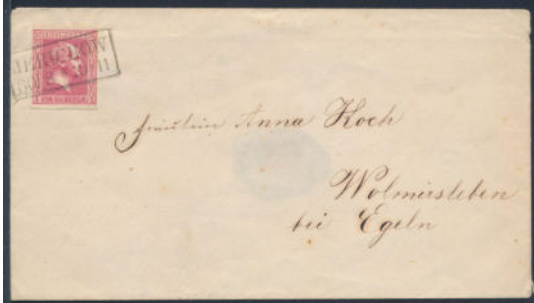 Fräulein Anna Koch
Wolmirsleben
bei Egeln